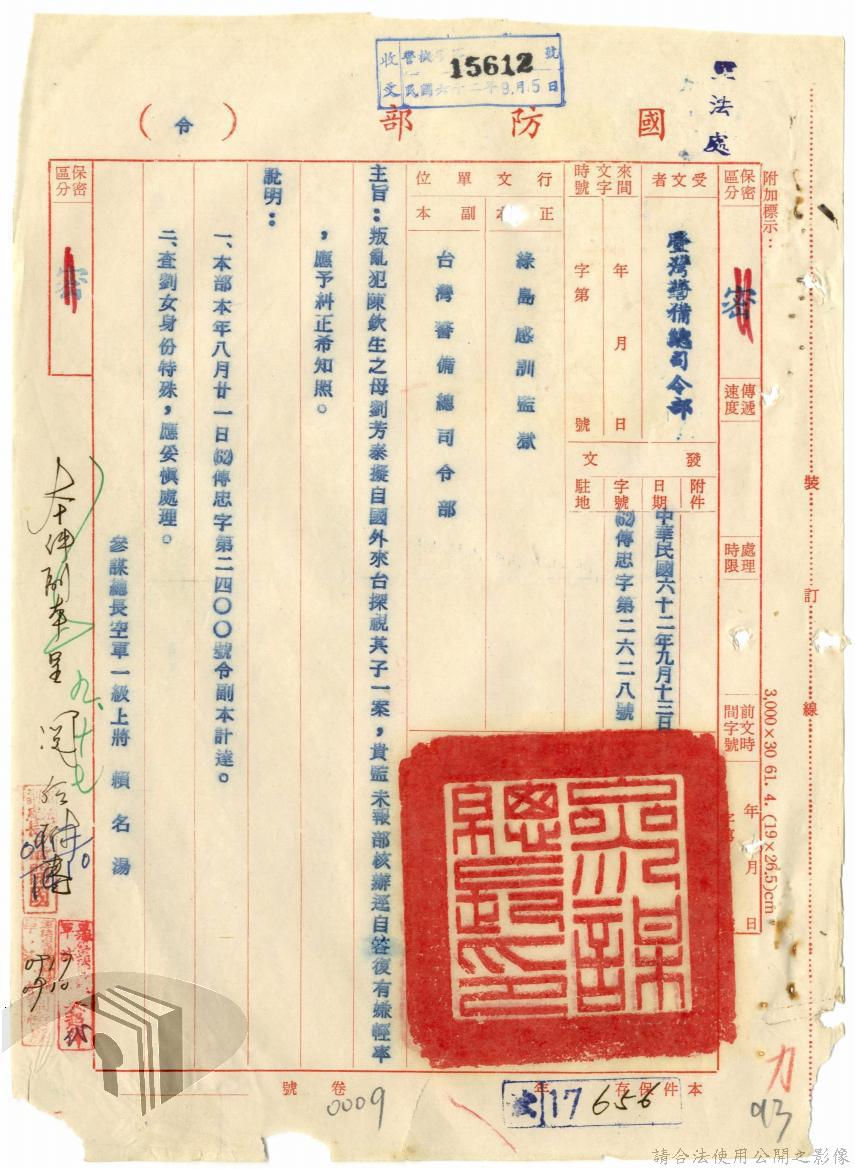 收文
警檢字第
15612
號
民國六十二年9月15日
軍法處
國防部
（令）
附加標示：
保密區分
密
傳遞速度
處理時限
前文時間字號
年月日
字第
受文者
臺灣警備總司令部
來文時間字號
年月日
字第號
發文
附件
日期
中華民國六十二年九月十三日
字號
(62)傳忠字第二六二八號
駐地
行文單位
正本
綠島感訓監獄
副本
台灣警備總司令部
主旨：叛亂犯陳欽生之母劉芳泰擬自國外來台探視其子一案，貴監未報部核辦逕自答復有嫌輕率
，應予糾正希知照。
說明：
一、本部本年八月廿一日(62)傳忠字第二四〇〇號令副本計達。
二、查劉女身份特殊，應妥慎處理。
參謀總長空軍一級上將賴名湯
保密區分
密
本件副本呈閱
九、十七
裝訂線
3,000×30 61. 4. (19×26.5)cm.
本件保存年
17 656
卷號
0009
93
請合法使用公開之影像